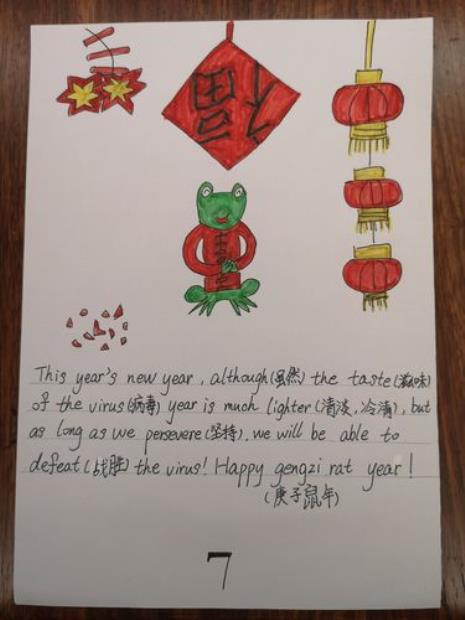 福
This year's new year, although(虽然) the taste(滋味)
of the virus(病毒) year is much lighter(清淡,冷清), but
as long as we persevere(坚持), we will be able to
defeat(战胜) the virus! Happy gengzi rat year!
(庚子鼠年)
7